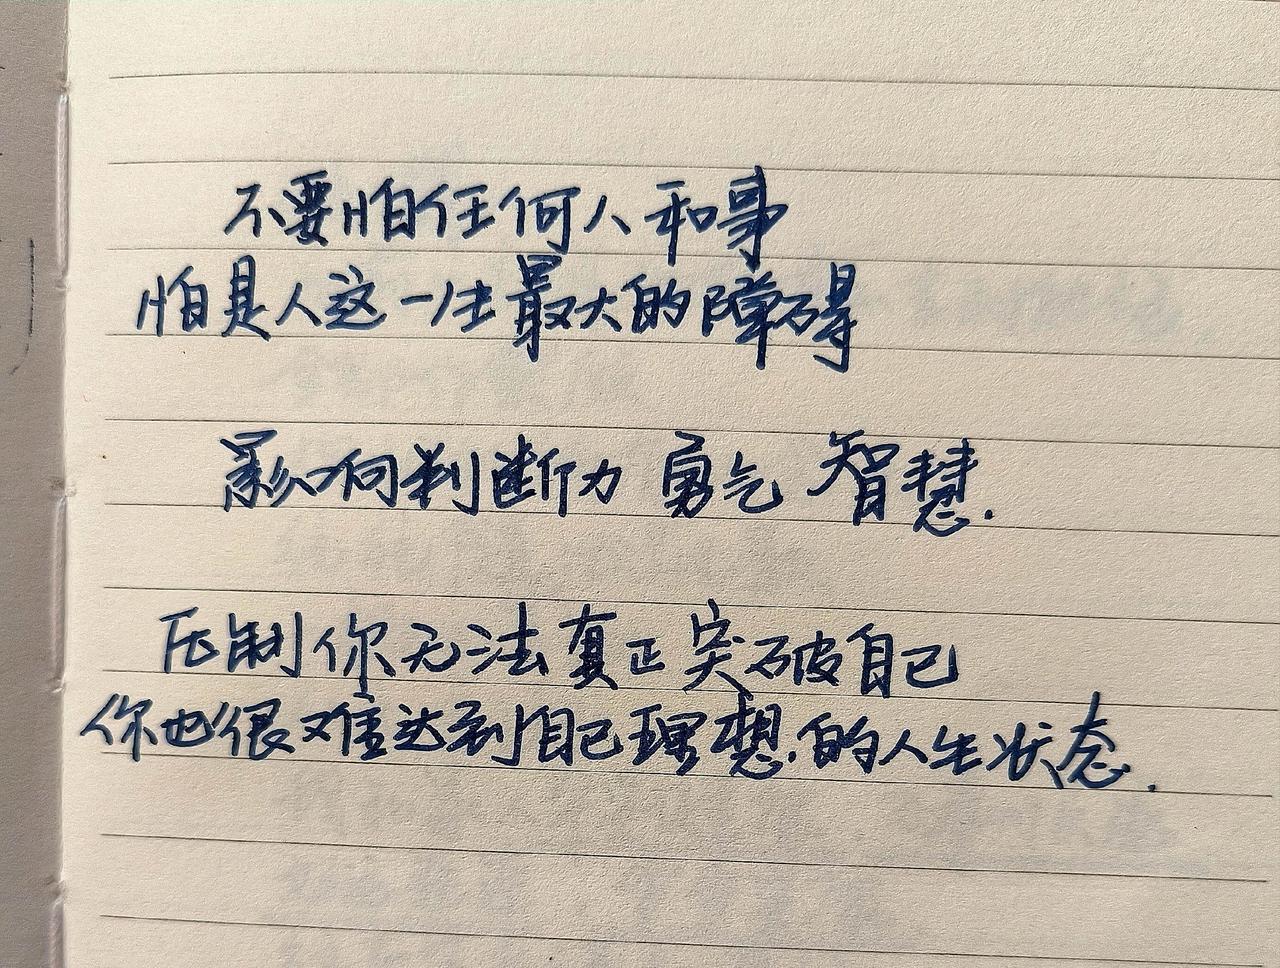 不要怕任何人和事
怕是人这一生最大的障碍
影响判断力 勇气 智慧.
压制你无法真正突破自己
你也很难达到自己理想的人生状态.